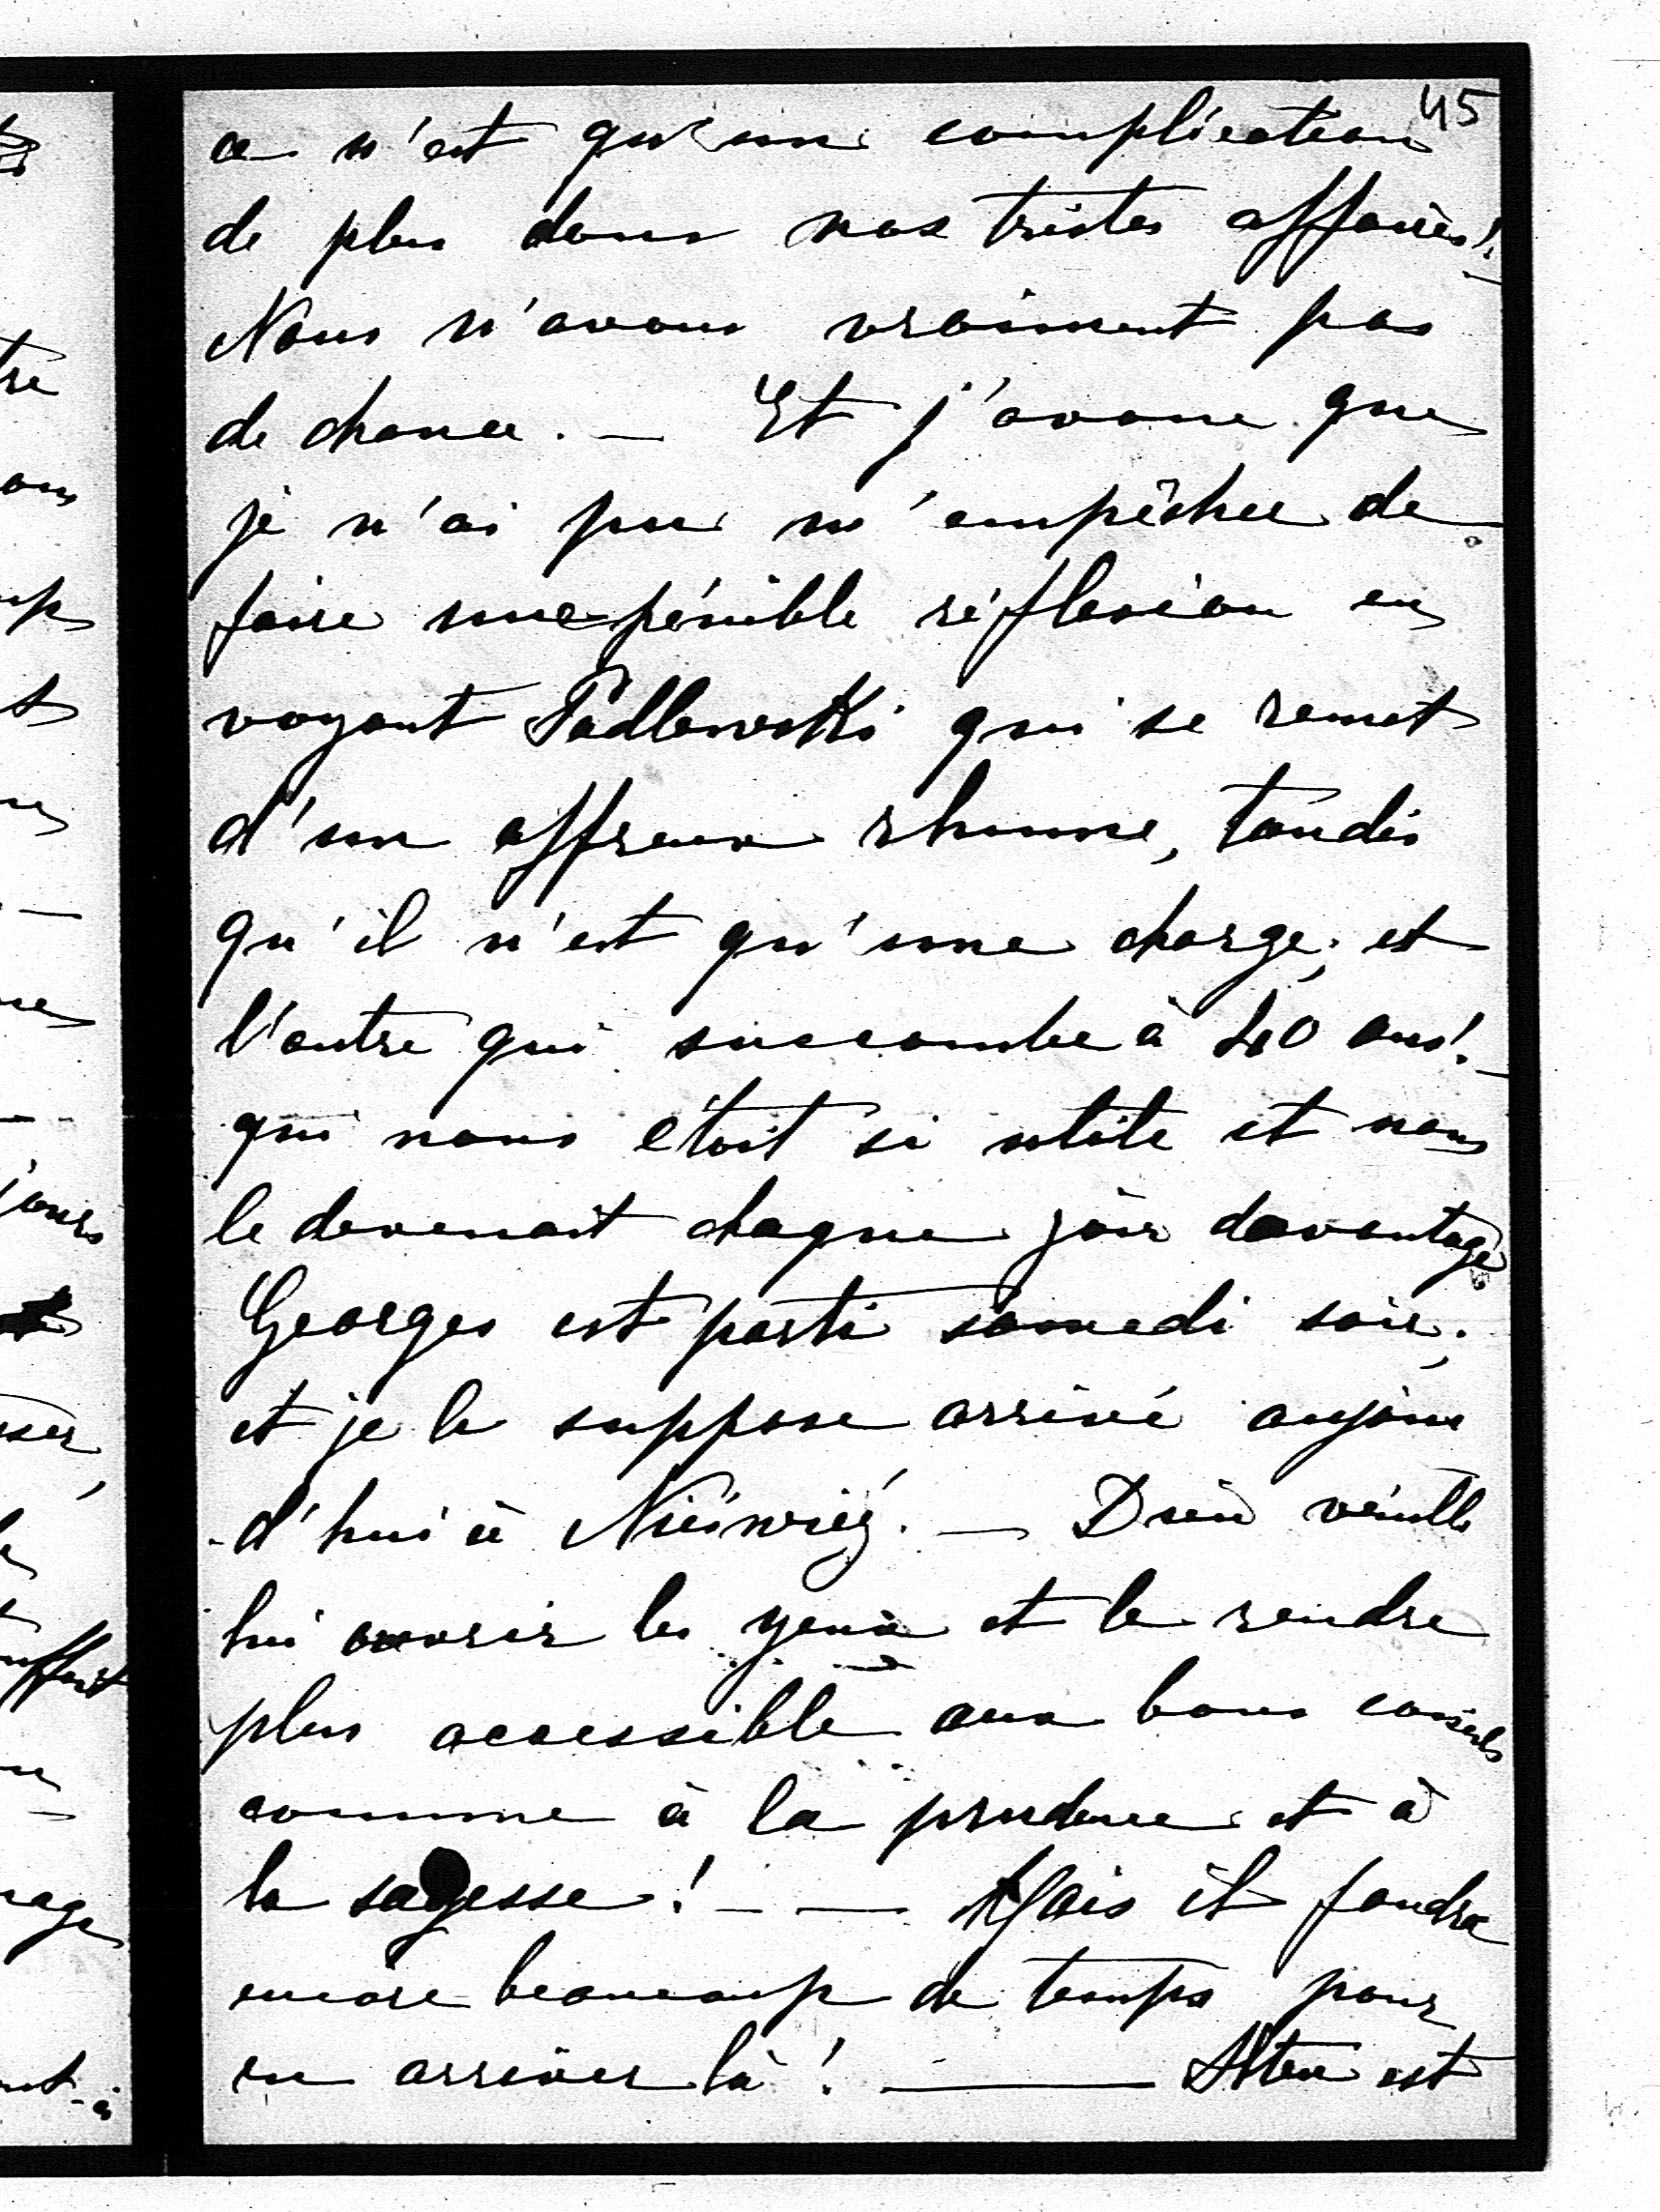 45
ce n'est qu'une complication
de plus dans nos tristes affaires!
Nous n'avons vraiment pas
de chance. — Et j'avoue que
je n'ai pu m'empêcher de
faire une pénible réflexion en
voyant Padlewski qui se remet
d'un affreux rhume, tandis
qu'il n'est qu'une charge; et
l'autre qui succombe à 40 ans! —
qui nous était si utile et nous
le devenait chaque jour davantage
Georges est parti samedi soir;
et je le suppose arrivé aujour
d'hui à Nieśwież. — Dieu veuille
lui ouvrir les yeux et le rendre
plus accessible aux bons conseils
comme à la prudence et à
la sagesse! — — Mais il faudra
encore beaucoup de temps pour
en arriver là! — est